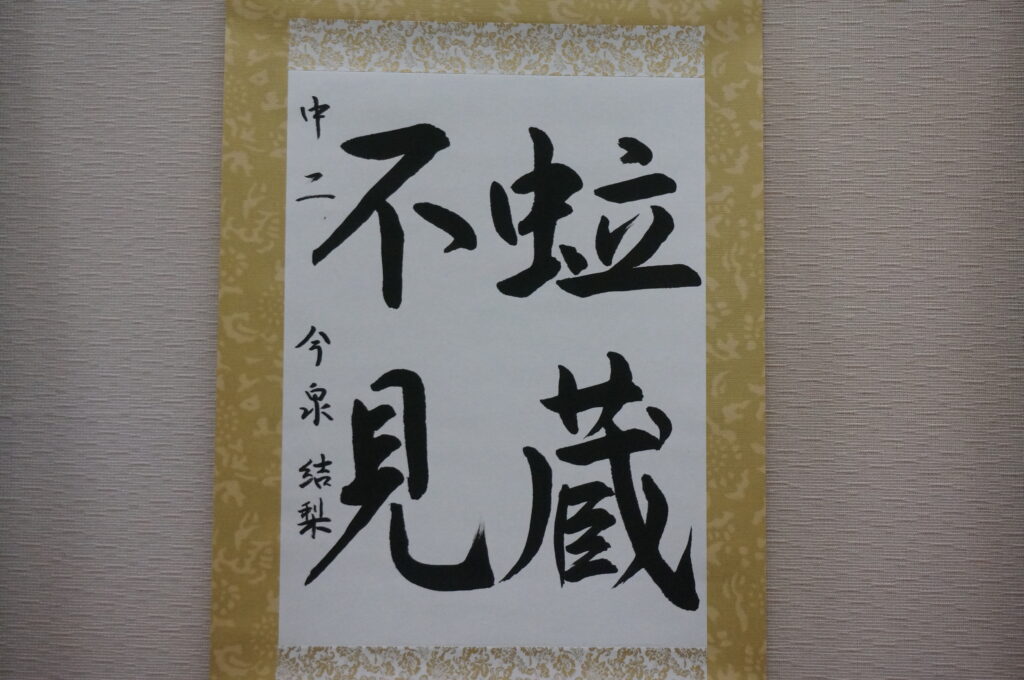 虹蔵
不見
中二 今泉結梨